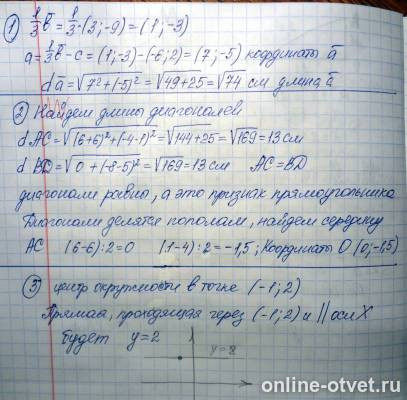 1) 1/3 b̄ = 1/3 · (3; -9) = (1; -3)
a = 1/3 b̄ - c = (1; -3) - (-6; 2) = (7; -5) координаты ā
d ā = √7² + (-5)² = √49+25 = √74 см длина ā
2) Найдем длины диагоналей
d AC = √(6+6)² + (-4-1)² = √144+25 = √169 = 13 см
d BD = √0 + (-8-5)² = √169 = 13 см AC = BD
диагонали равны, а это признак прямоугольника
Диагонали делятся пополам, найдем середину
AC (6-6):2=0 (1-4):2=-1,5; Координаты O (0; -1,5)
3) центр окружности в точке (-1; 2)
Прямая, проходящая через (-1; 2) и || оси X
будет y=2
y=2
online-otvet.ru